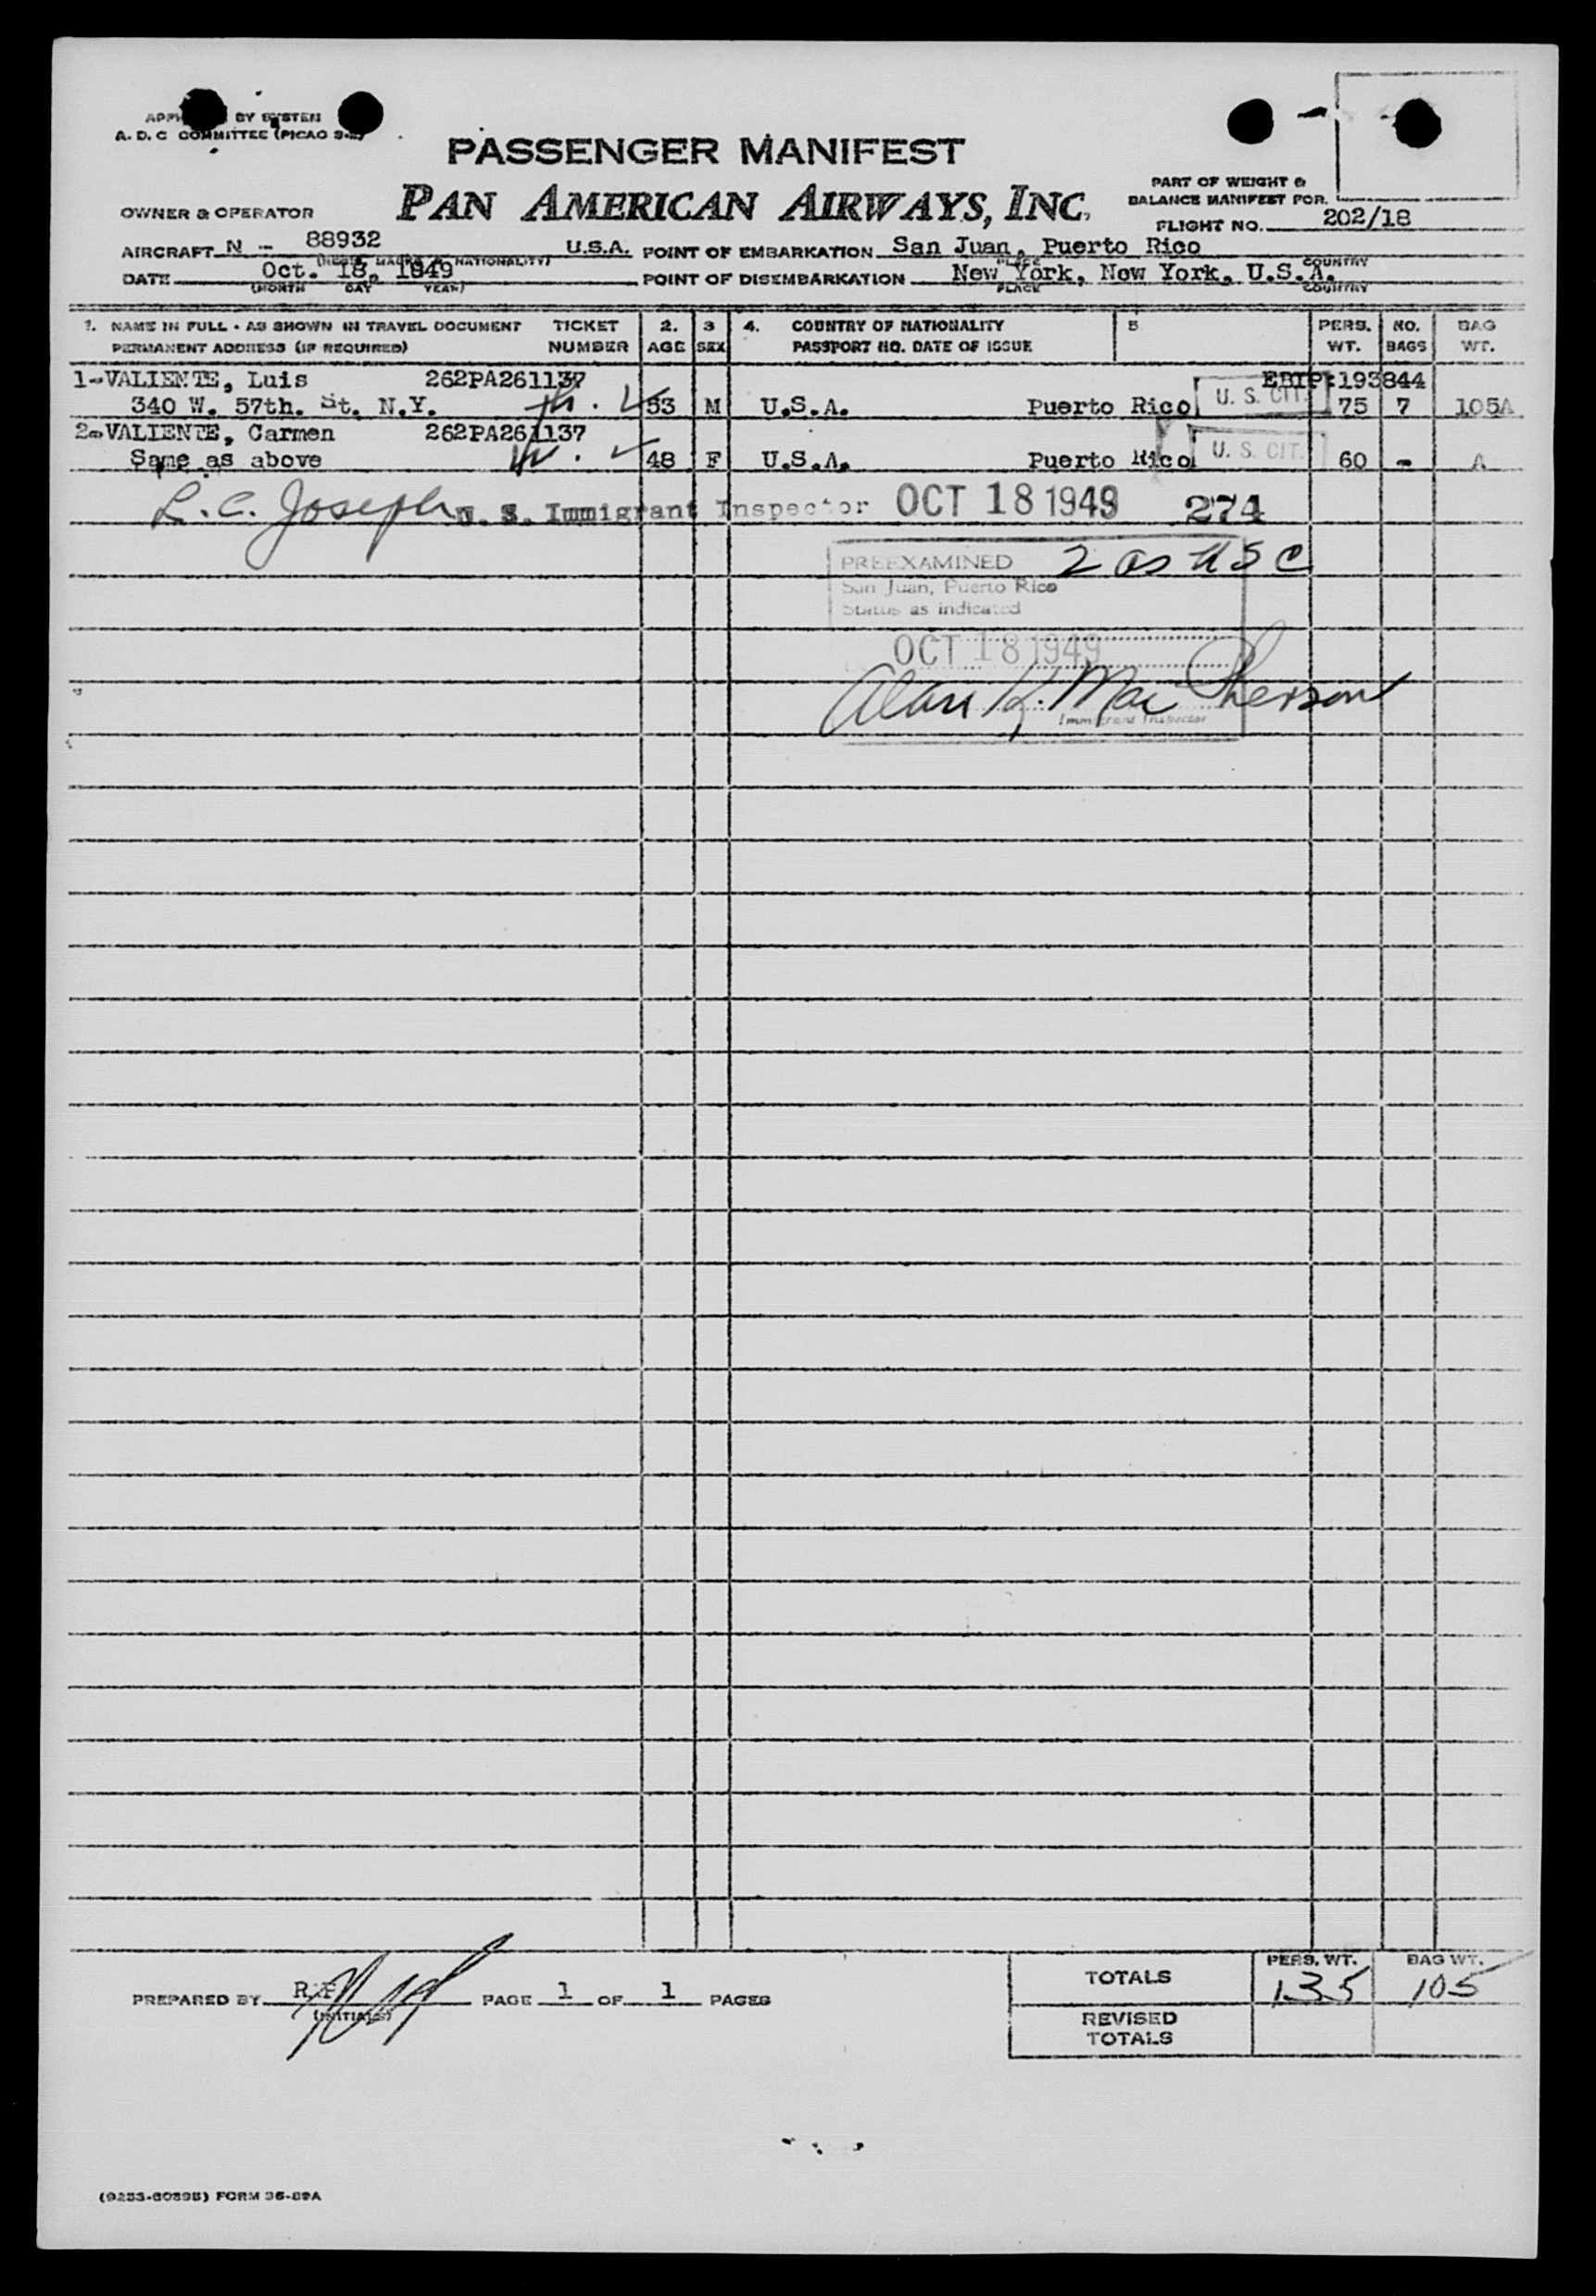 BY SYSTEM
A. D. C COMMITTEE (PICAO
PASSENGER MANIFEST
PAN AMERICAN AIRWAYS, INC.
PART OF WEIGHT &
BALANCE MANIFEST FOR
OWNER & OPERATOR
FLIGHT NO. 202/18
AIRCRAFT N - 88932 U.S.A. POINT OF EMBARKATION San Juan, Puerto Rico
NATIONALITY) PLACE COUNTRY
DATE Oct. 18, 1949 POINT OF DISEMBARKATION New York, New York, U.S.A.
(MONTH DAY YEAR) PLACE COUNTRY
1. NAME IN FULL - AS SHOWN IN TRAVEL DOCUMENT TICKET 2. 3 4. COUNTRY OF NATIONALITY 5 PERS. NO. BAG
PERMANENT ADDRESS (IF REQUIRED) NUMBER AGE SEX PASSPORT NO. DATE OF ISSUE WT. BAGS WT.
1-VALIENTE, Luis 262PA261137 EBTP:193844
340 W. 57th. St. N.Y. 53 M U.S.A. Puerto Rico U. S. CIT. 75 7 105A
2-VALIENTE, Carmen 262PA261137
Same as above 48 F U.S.A. Puerto Rico U. S. CIT. 60 - A
L. C. Joseph U. S. Immigrant Inspector OCT 18 1949 274
PREEXAMINED 2 as USC
San Juan, Puerto Rico
Status as indicated
OCT 18 1949
Alan K. MacPherson
Immigrant Inspector
PREPARED BY R.F. PAGE 1 OF 1 PAGES
(INITIALS)
PERS. WT. BAG WT.
TOTALS 135 105
REVISED
TOTALS
FORM 36-89A